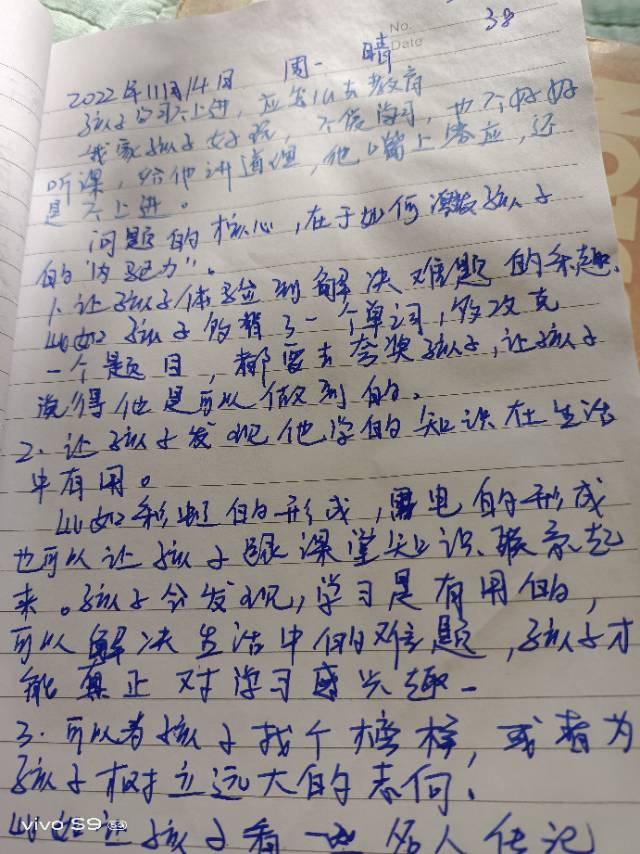 No.
Date
38
2022年11月14日 周一 晴
孩子学习不上进，应怎么去教育
我家孩子好玩，不爱学习，也不好好
听课，给他讲道理，他嘴上答应，还
是不上进。
问题的核心，在于如何激发孩子
的"内驱力"。
1、让孩子体验到解决难题的乐趣、
比如孩子背了一个单词，攻克
一个题目，都要去夸奖孩子，让孩子
觉得他是可以做到的。
2、让孩子发现他学的知识在生活
中有用。
比如彩虹的形成，雷电的形成
也可以让孩子跟课堂知识、联系起
来。孩子会发现，学习是有用的，
可以解决生活中的难题，孩子才
能真正对学习感兴趣-
3、可以为孩子找个榜样，或者为
孩子树立远大的志向、
比如让孩子看一些名人传记
vivo S9